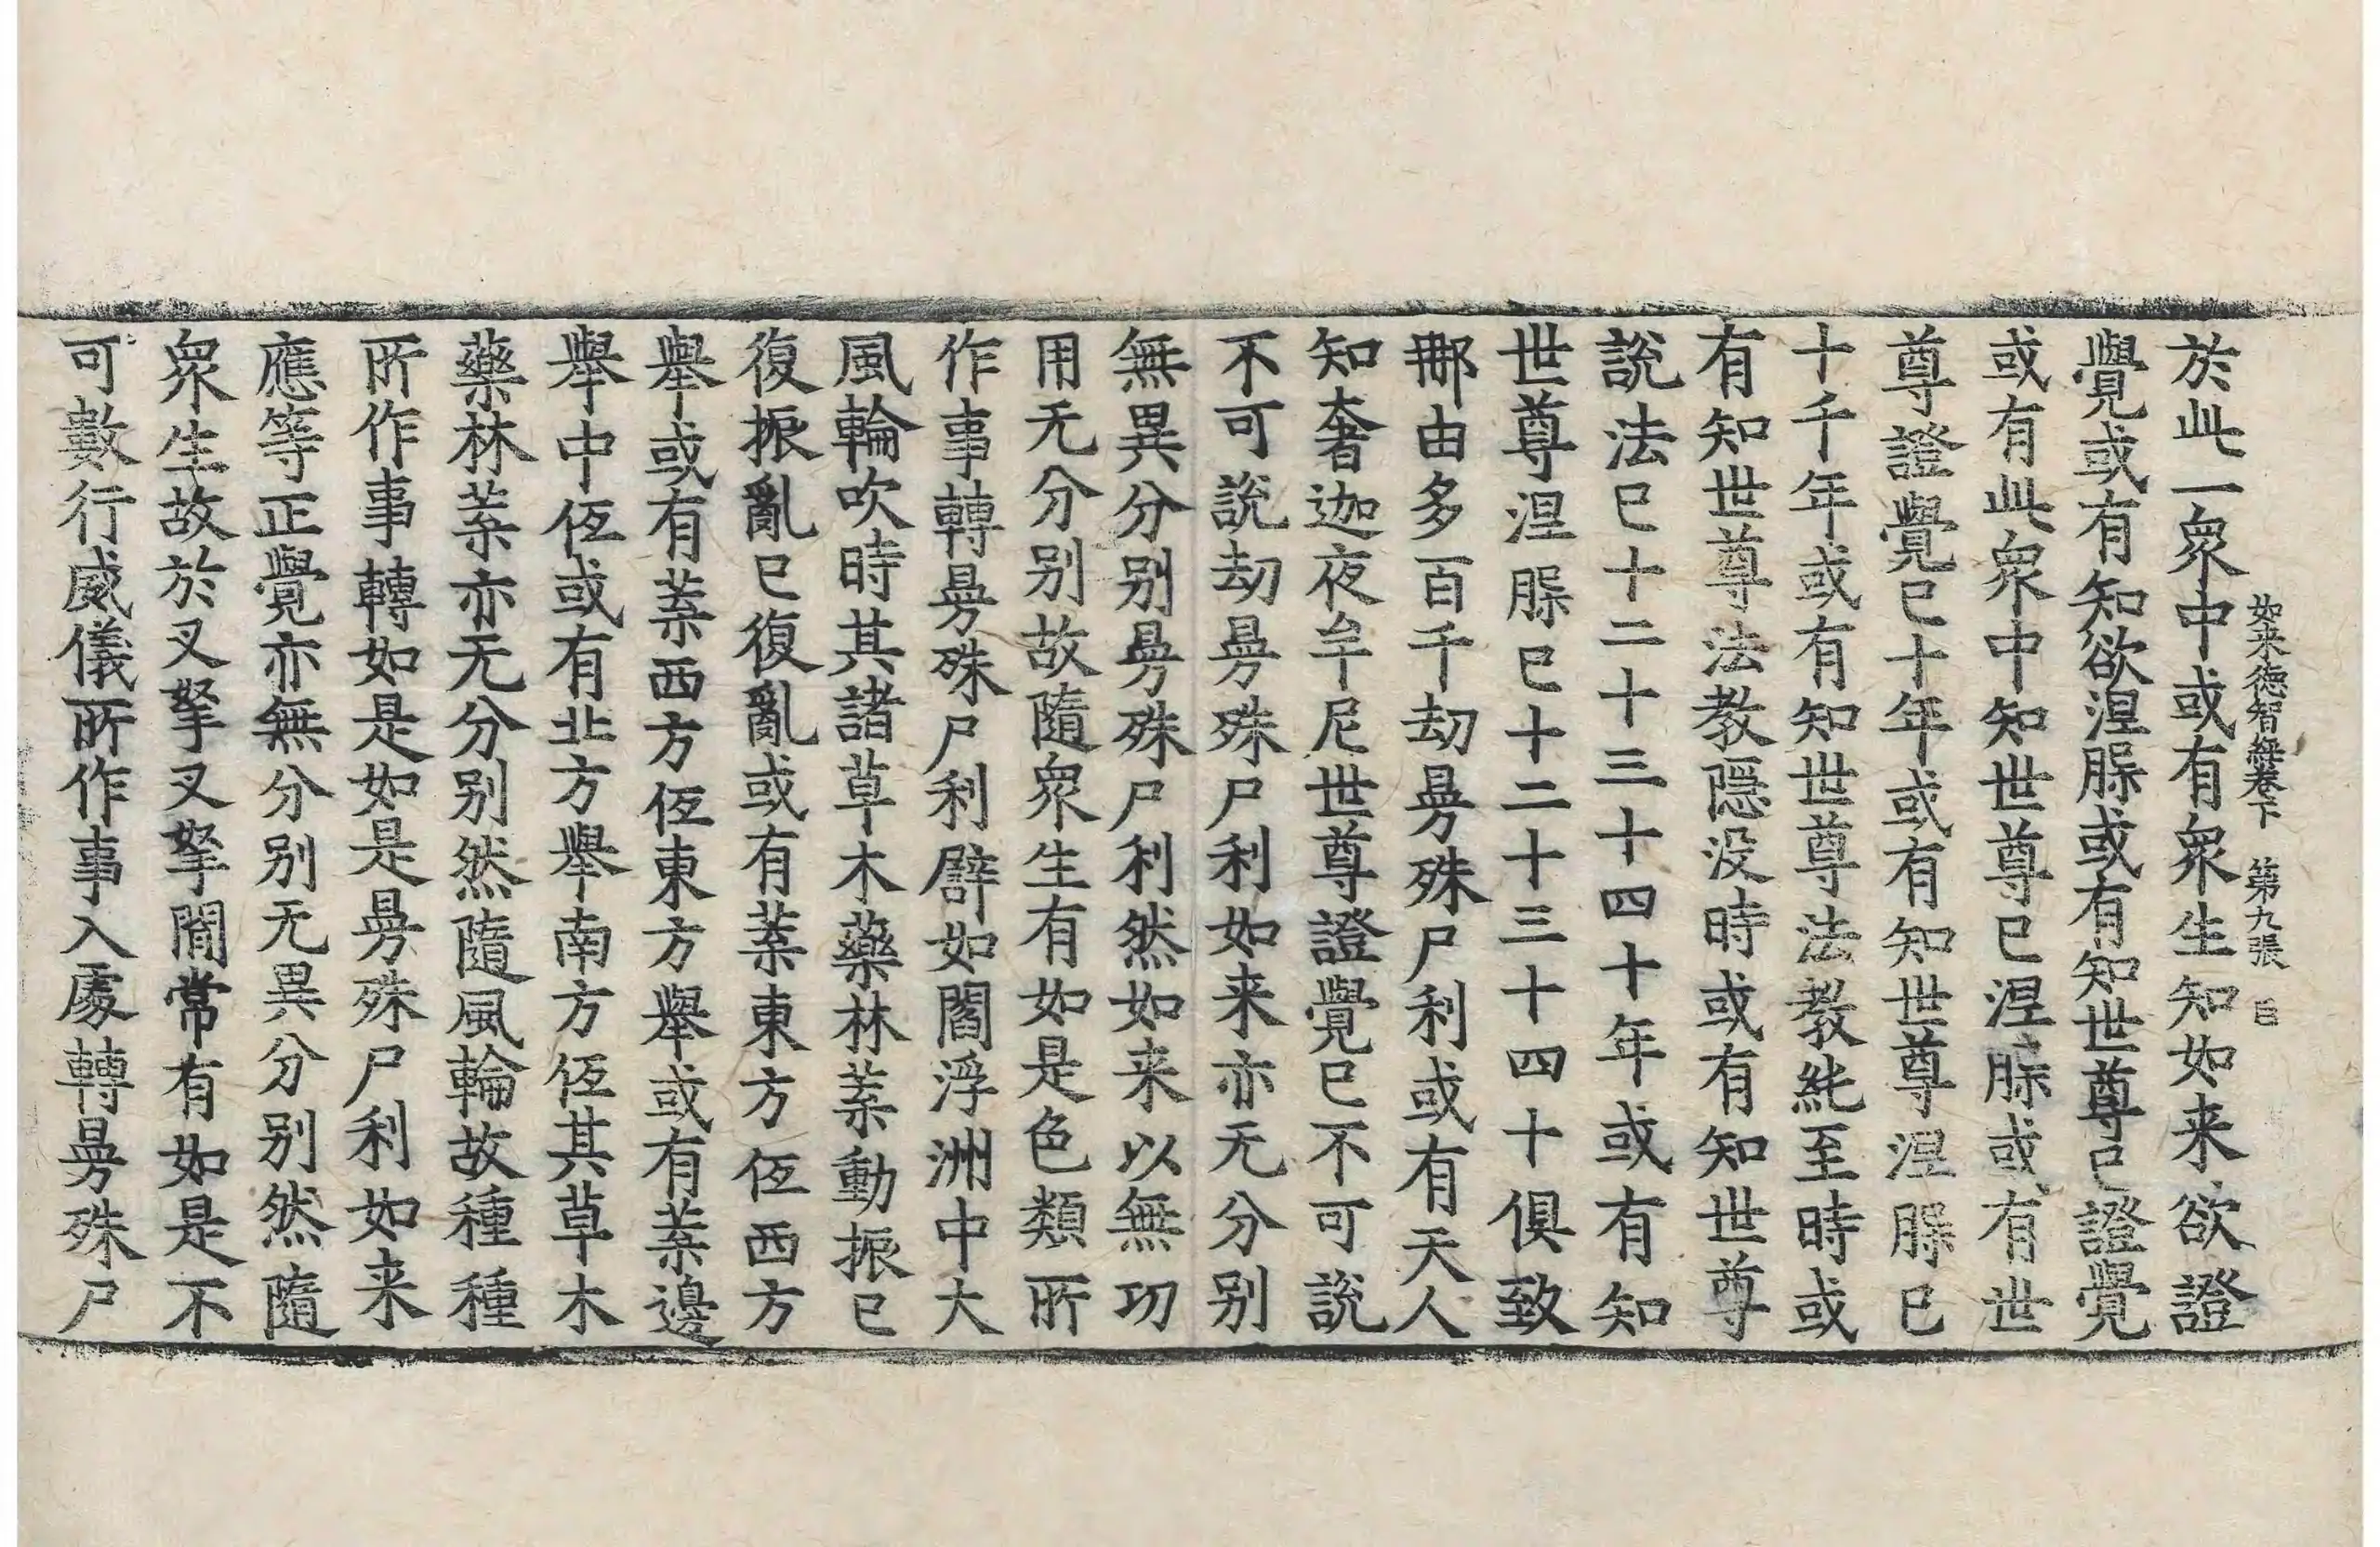 於此一衆中或有衆生知如来欲證
覺或有知欲涅脲或有知世尊已證覺
或有此衆中知世尊已涅脲或有世
尊證覺已十年或有知世尊涅脲已
十千年或有知世尊法教純至時或
有知世尊法教隱没時或有知世尊
說法已十二十三十四十年或有知
世尊涅脲已十二十三十四十俱致
𨚗由多百千劫㬅殊尸利或有天人
知奢迦夜牟尼世尊證覺已不可說
不可說劫㬅殊尸利如来亦无分别
無異分别㬅殊尸利然如来以無功
用无分别故隨衆生有如是色類所
作事轉㬅殊尸利譬如閻浮洲中大
風輪吹時其諸草木藥林葉動振已
復振亂已復亂或有葉東方伍西方
舉或有葉西方伍東方舉或有葉邊
舉中伍或有北方舉南方伍其草木
藥林葉亦无分别然隨風輪故種種
所作事轉如是如是㬅殊尸利如来
應等正覺亦無分别无異分别然隨
衆生故於叉拏叉拏間常有如是不
可數行威儀所作事入處轉㬅殊尸
如来德智經卷下 第九張